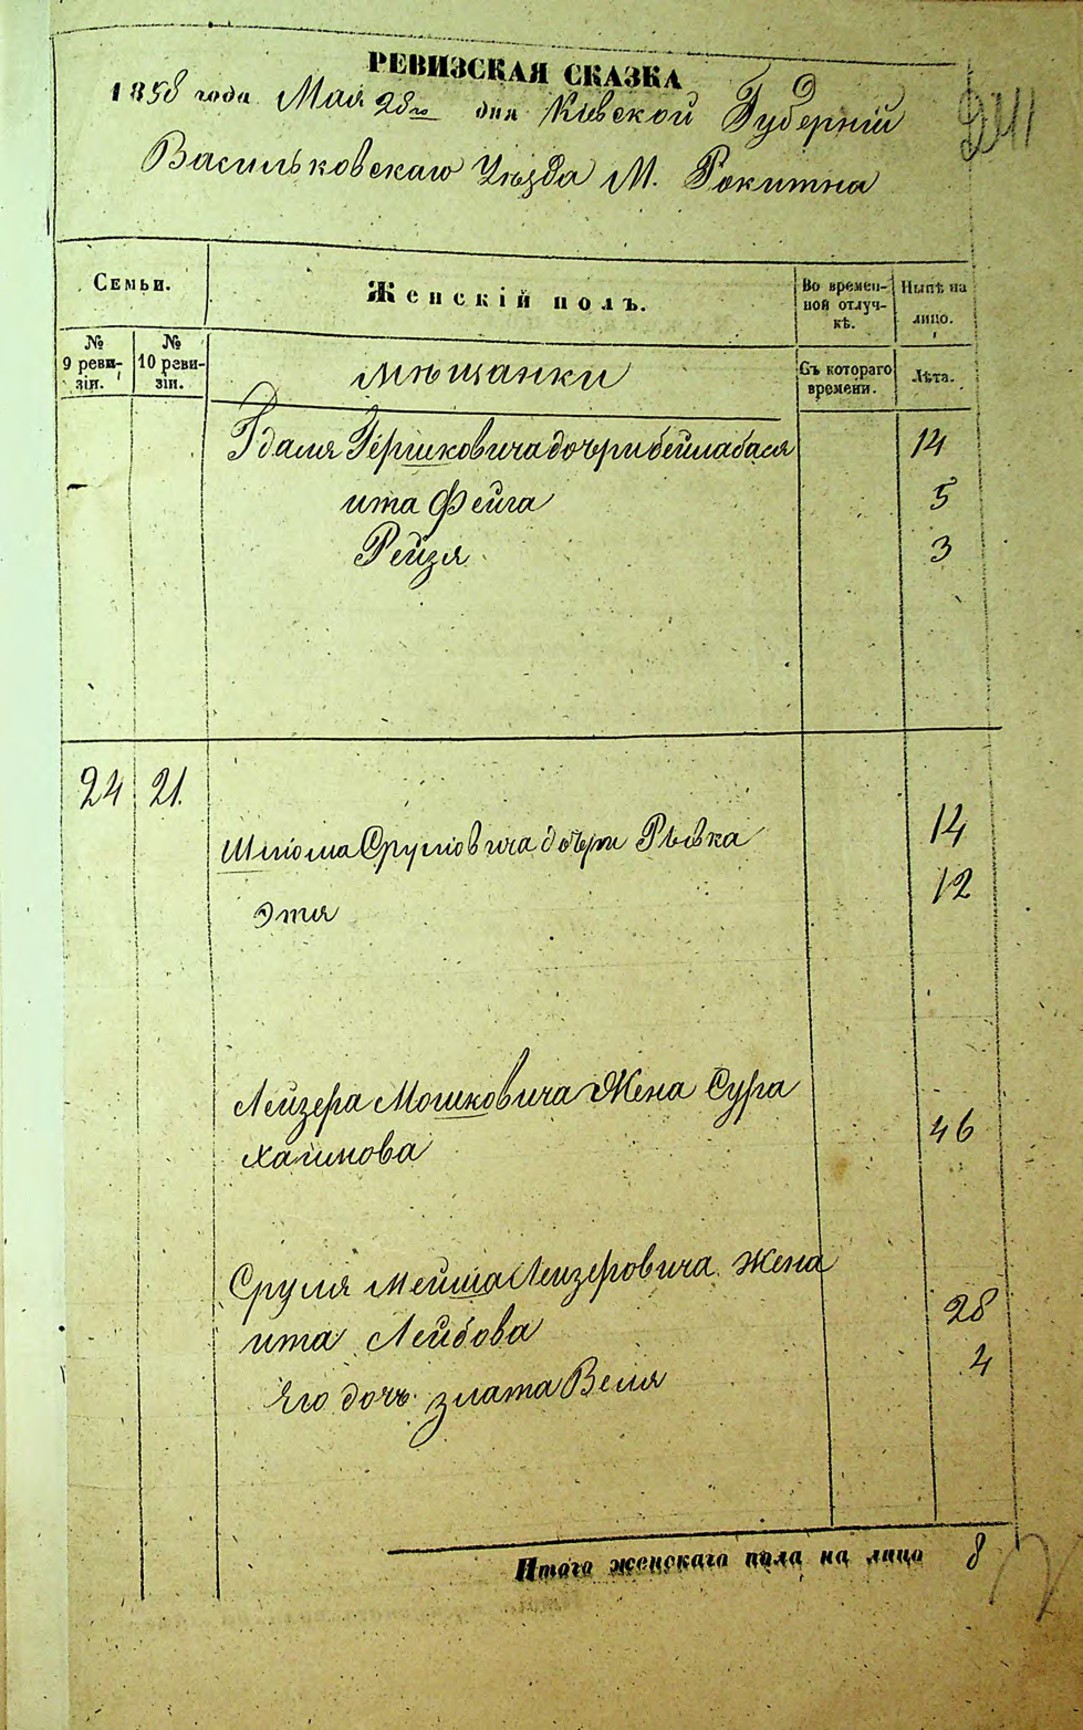 РЕВИЗСКАЯ СКАЗКА
1858 года Мая 28го дня Кіевской Губерніи
241
Васильковскаго Уѣзда М. Рокитна
Семьи.
Женскій полъ.
Во времен-
ной отлуч-
кѣ.
Нынѣ на
лицо.
№
9 реви-
зіи.
№
10 реви-
зіи.
мѣщанки
Съ котораго
времени.
Лѣта.
Гдаля Гершковича дочери бейлабася 14
ита Фейга 5
Рейзя 3
24 21.
Шлиома Срулiовича дочери Рывка 14
Этя 12
Лейзера Мошковича Жена Сура
Хаимова 46
Сруля Мейша Лейзеровича жена
ита Лейбова 28
Его дочь злата Веля 4
Итого женскаго пола на лицо 8